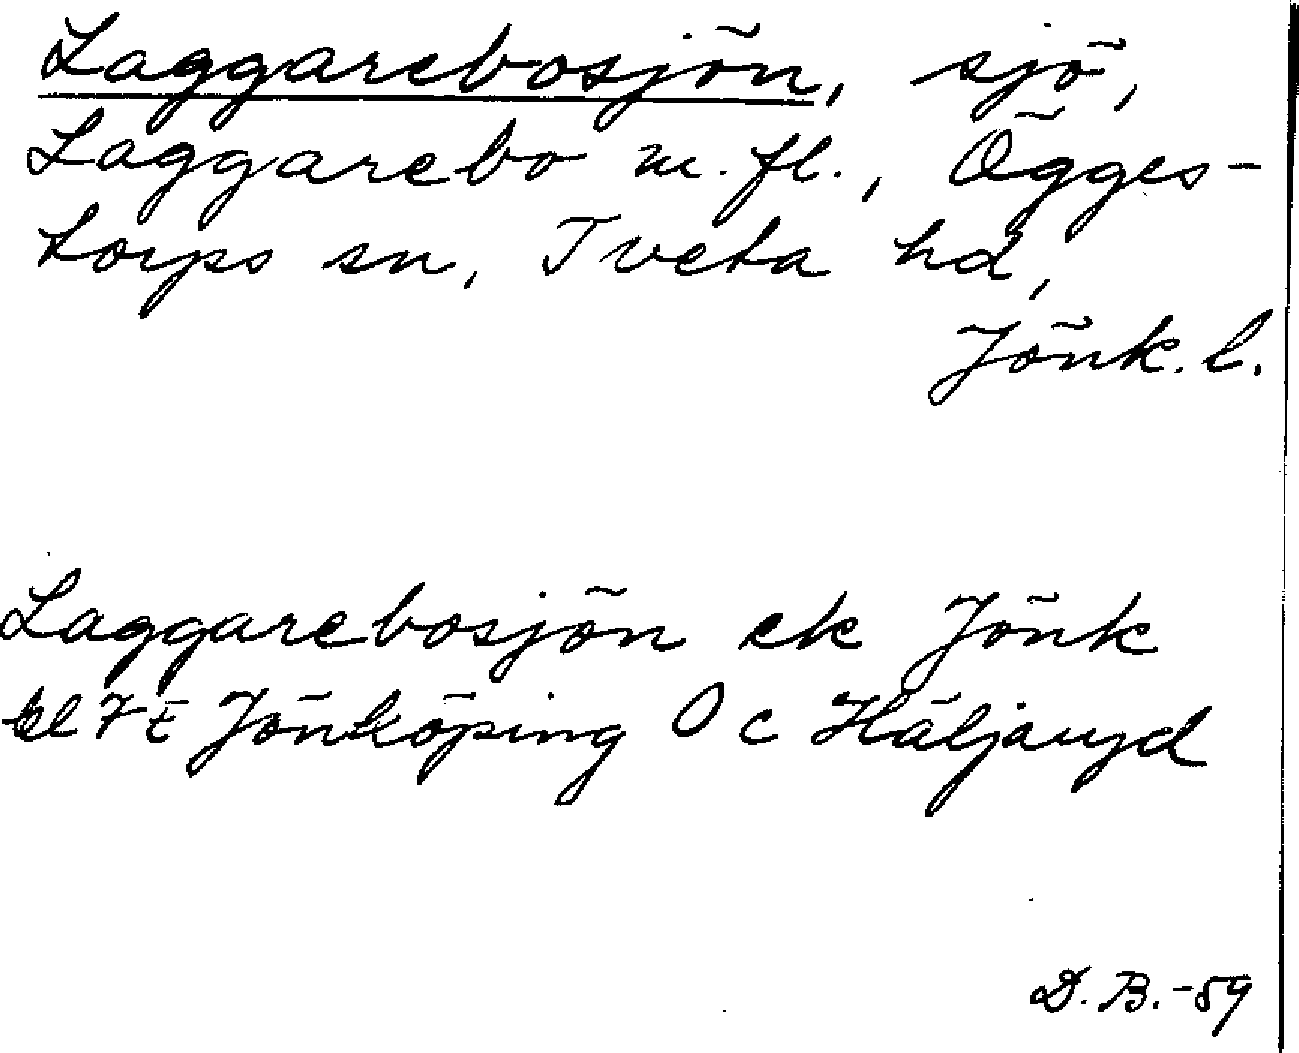 Laggarebosjön, sjö,
Laggarebo m.fl., Ögges-
torps sn, Tveta hd,
Jönk. l.
Laggarebosjön ek Jönk
bl 7 E Jönköping Ö c Häljaryd
D. B. -59